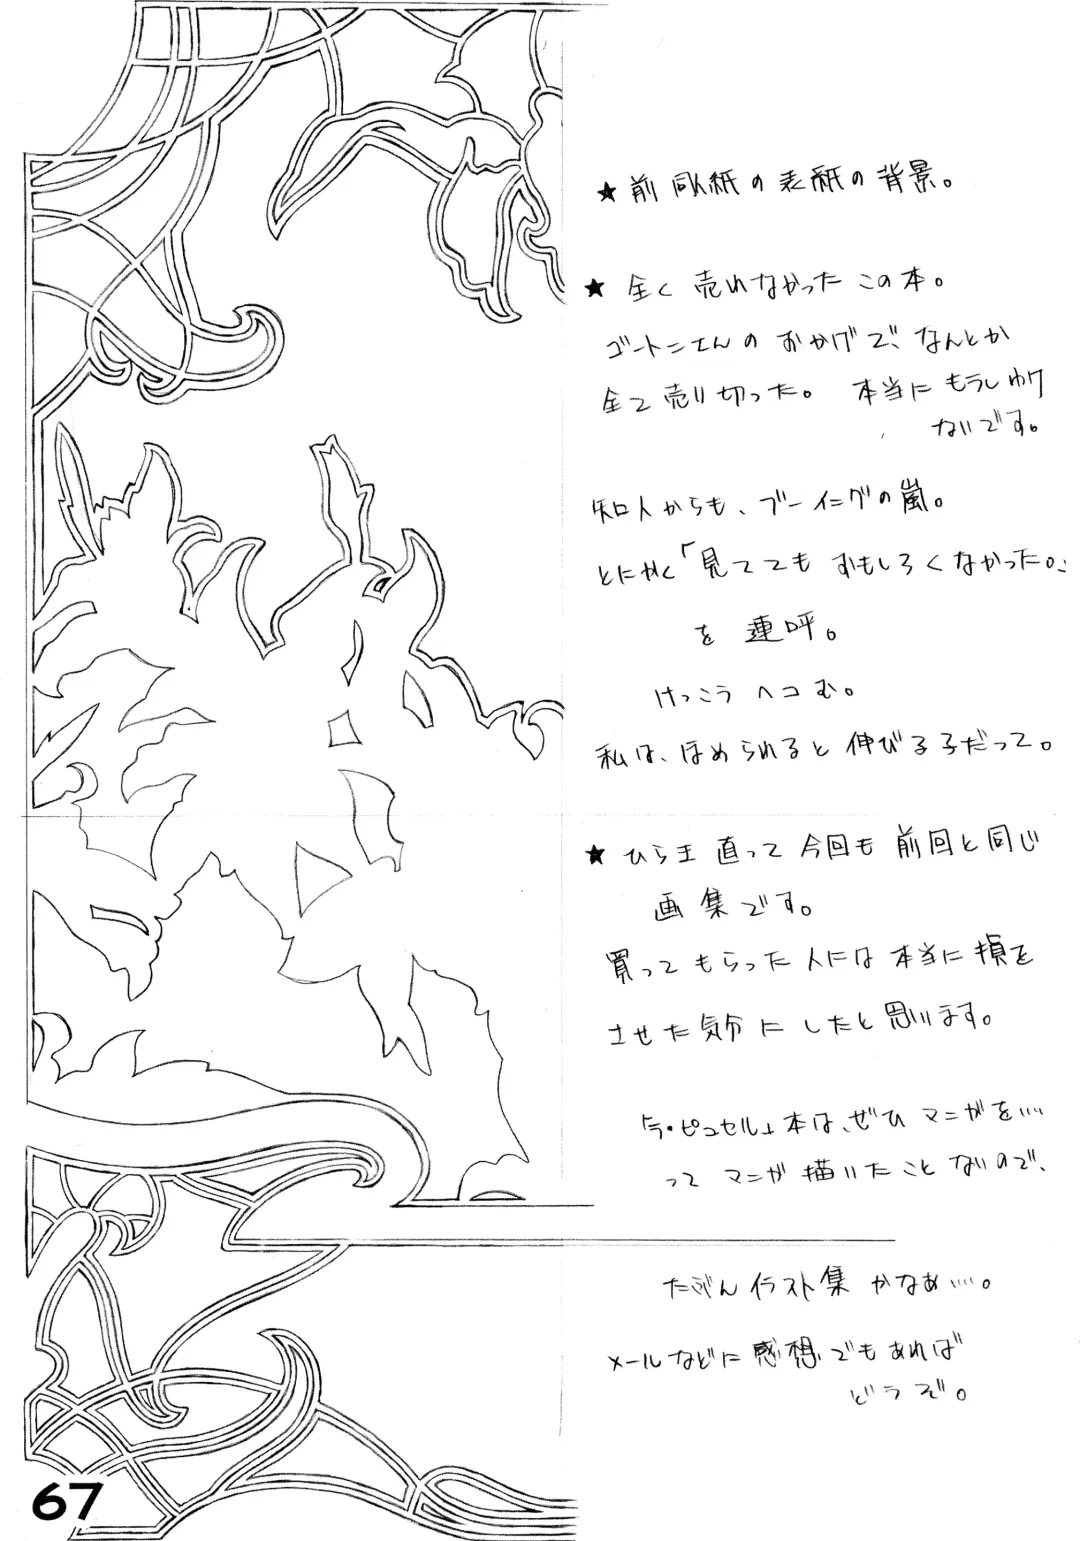 ★ 前同人紙の表紙の背景。
★ 全く売れなかったこの本。
ゴートニさんのおかげで、なんとか
全て売り切った。 本当にもうしわけ
ないです。
知人からも、ブーイングの嵐。
とにかく「見ててもおもしろくなかった。」
を連呼。
けっこうヘコむ。
私は、ほめられると伸びる子だって。
★ ひら 直って今回も前回と同じ
画集です。
買ってもらった人には本当に損を
させた気分にしたと思います。
「ラ・ピュセル」本は、ぜひマンガを‥‥
ってマンガ描いたことないので、
たぶんイラスト集かなぁ‥‥。
メールなどに感想でもあれば
どうぞ。
67